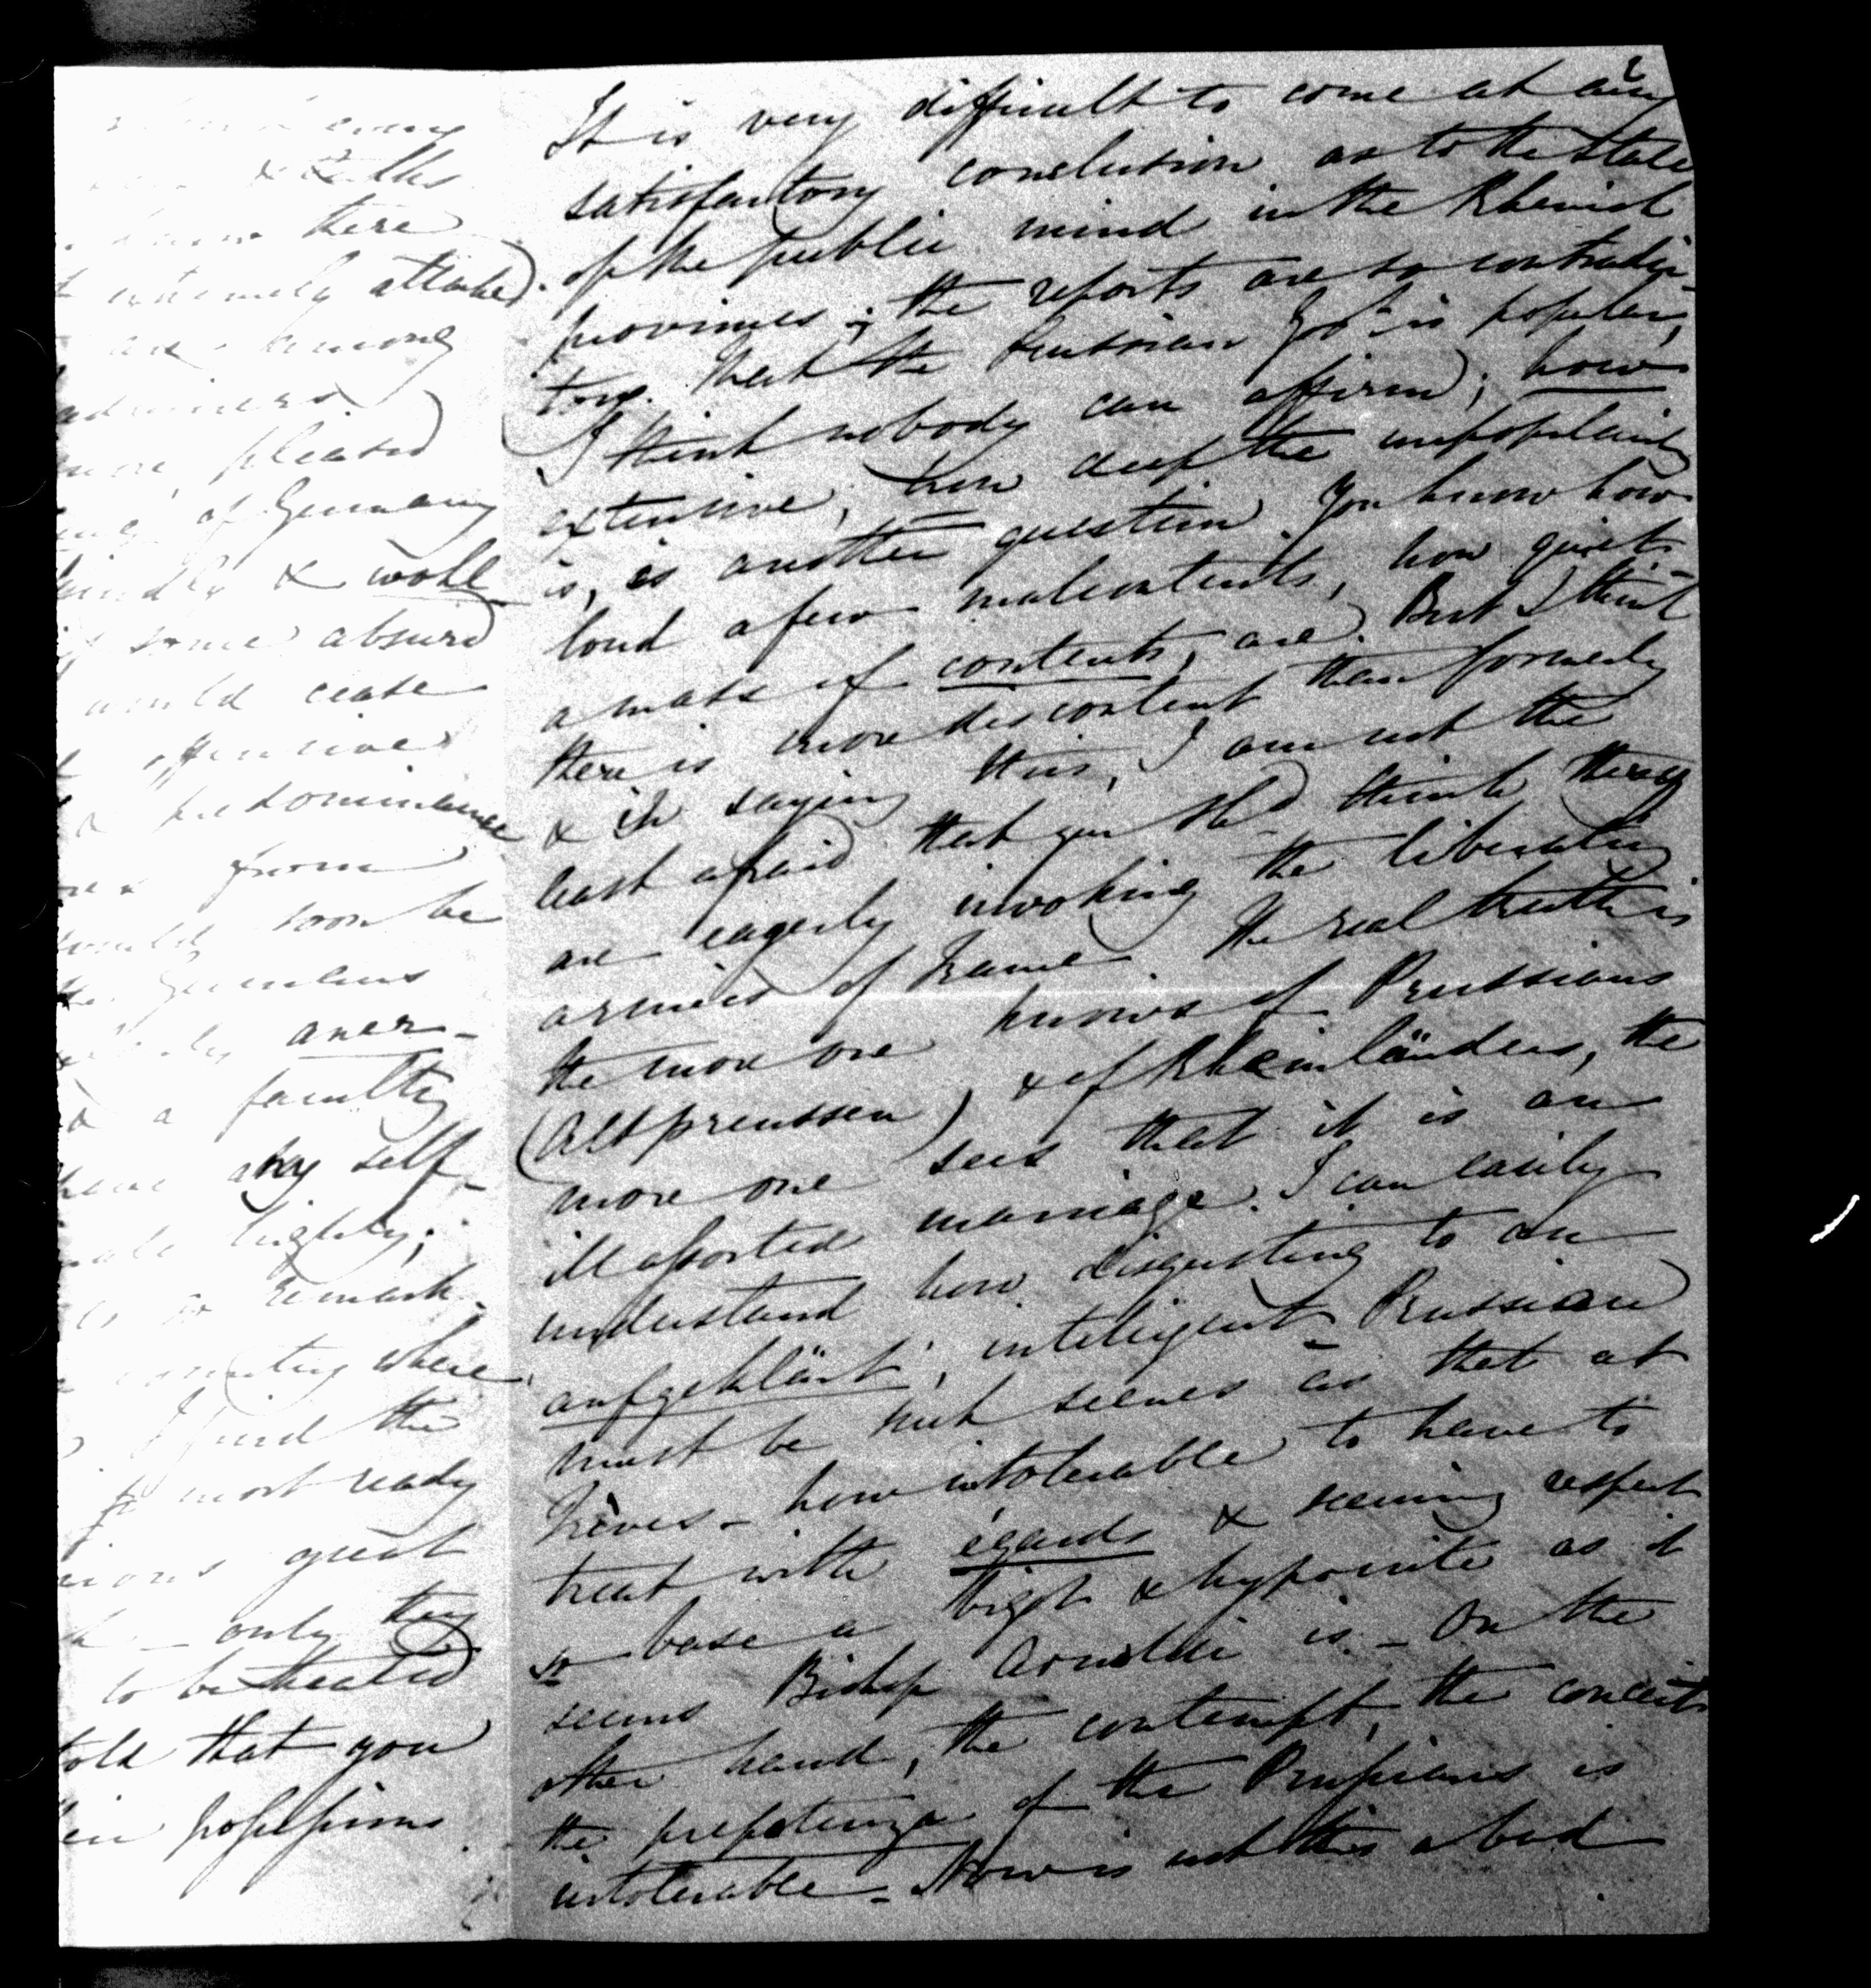 & talks
there
extremely attached.
are among
admirers
more pleased
of Germany
kindly & wohl
some absurd
would cease
offensive
predominance
from
would soon be
the Germans
aner-
a faculty
have any self-
rate highly;
as to remark
country where
I find the
most ready
great
only they
to be treated
told that you
in professions
2
It is very difficult to come at any
satisfactory conclusion as to the state
of the public mind in the Rhenish
provinces; the reports are so contradic-
tory. That the Prussian Govt is popular,
I think nobody can affirm; how
extensive, how deep the unpopularity
is, is another question. You know how
loud a few malcontents, how quiet
a mass of contents, are. But I think
there is more discontent than formerly
& in saying this, I am not the
least afraid that you shd think they
are eagerly invoking the liberating
armies of France. The real truth is
the more one knows of Prussians
(Altpreussen) & of Rheinländers, the
more one sees that it is an
ill assorted marriage. I can easily
understand how disgusting to an
aufgeklärt, intelligent Prussian
must be such scenes as that at
Trèves - how intolerable to have to
treat with égards & seeming respect
so base a bigot & hypocrite as it
seems Bishop Arnoldi is. - On the
other hand, the contempt, the conceit
the prepotenza of the Prussians is
intolerable - Now is not this a bad